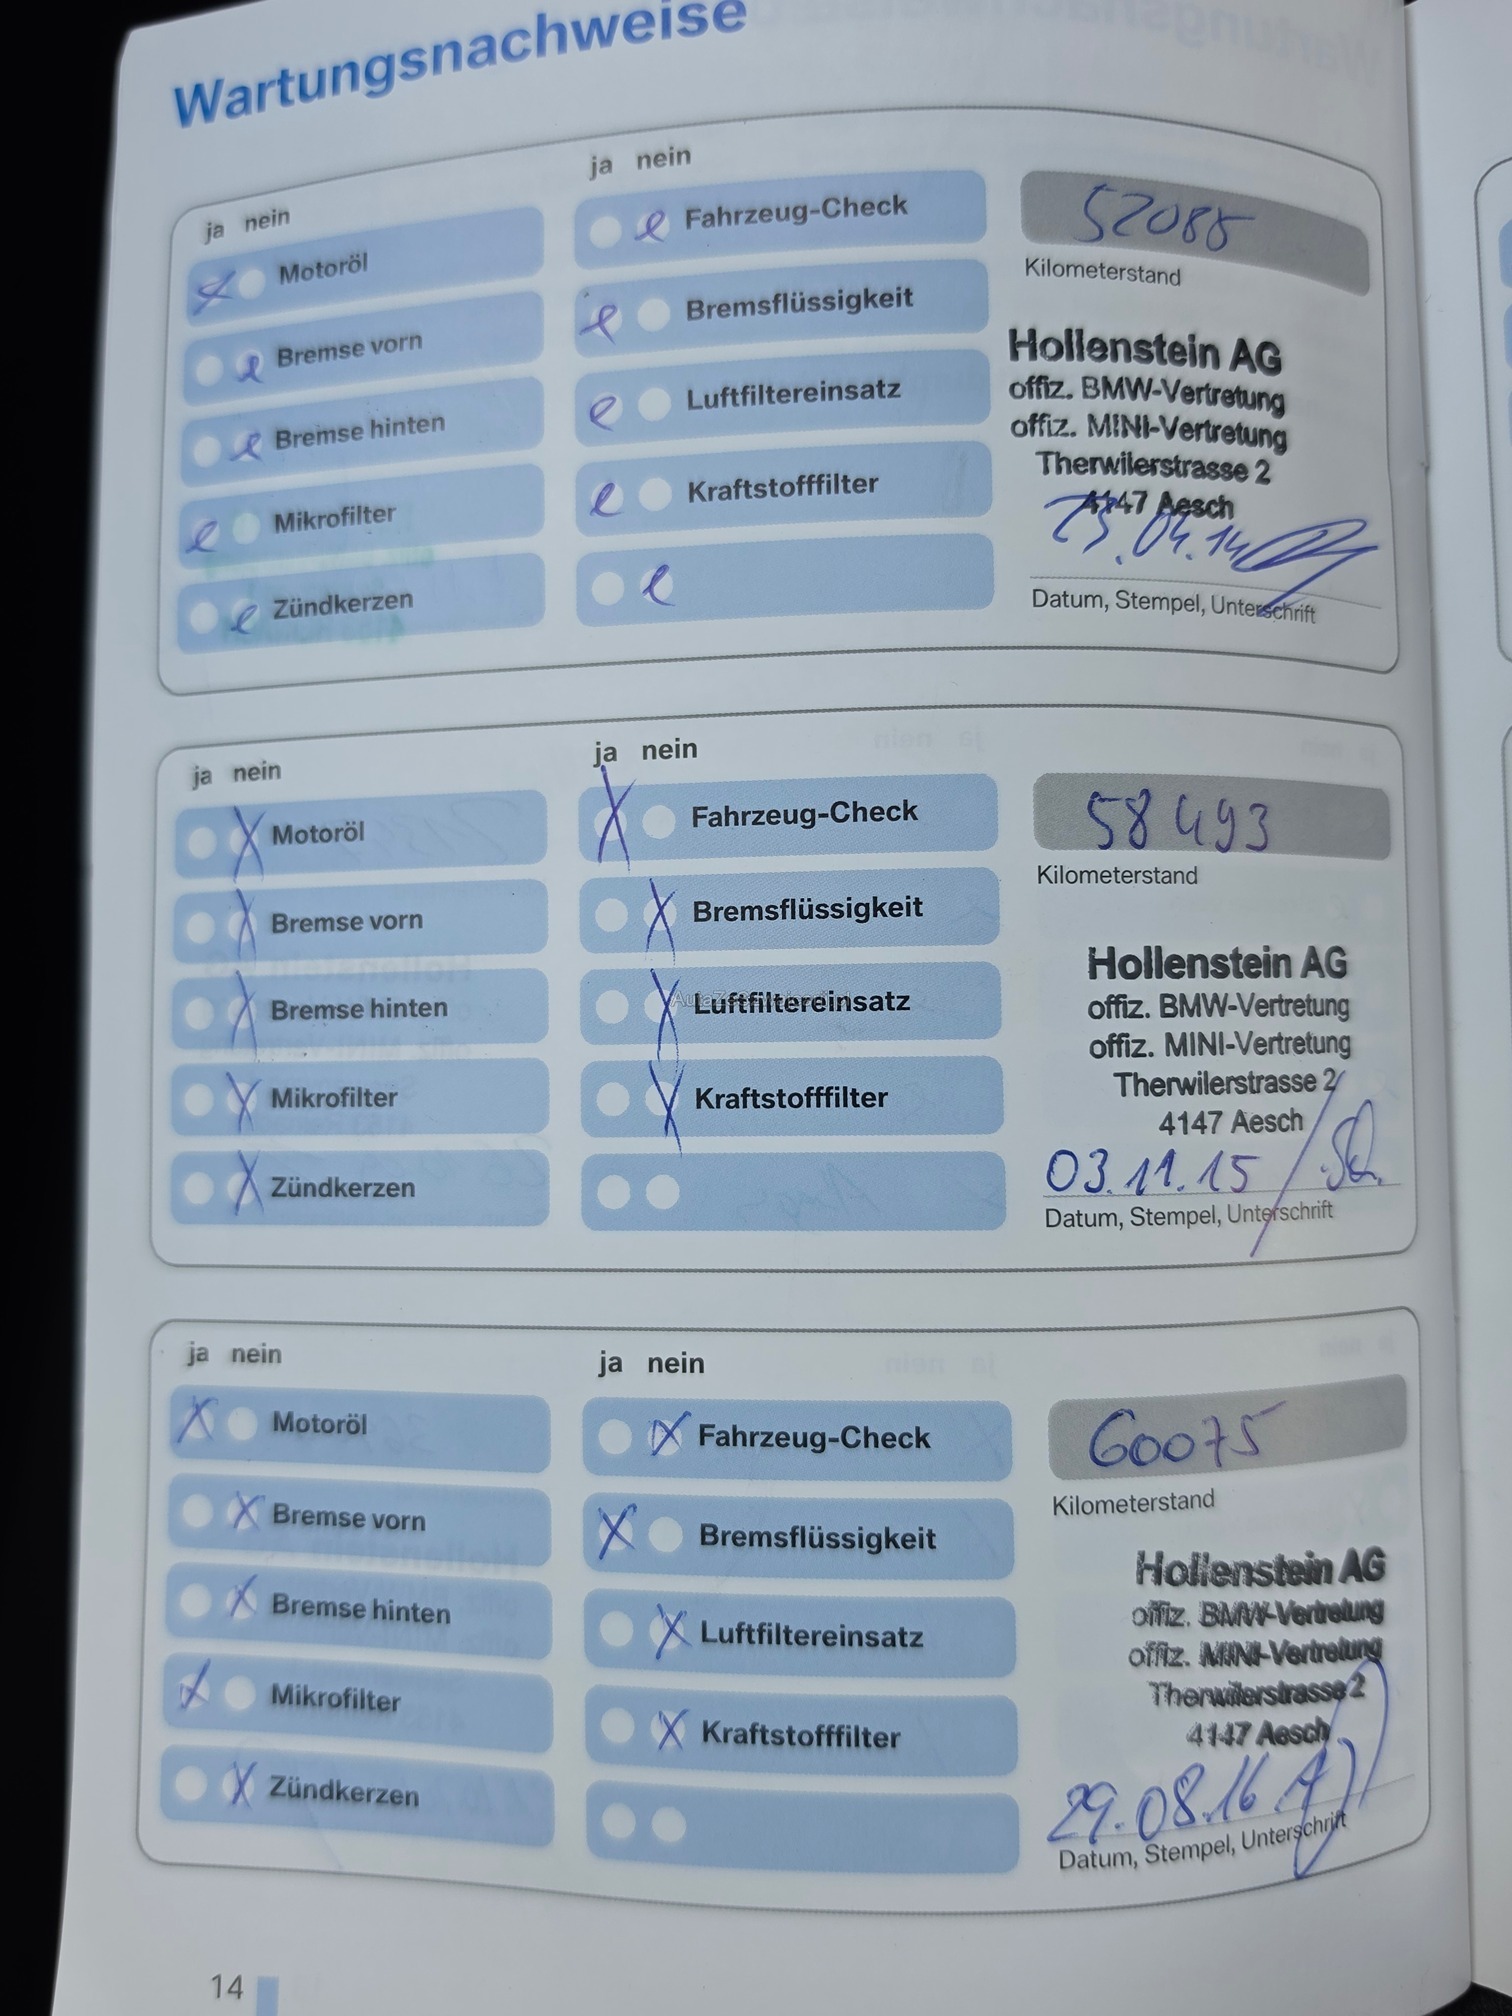 Wartungsnachweise
ja nein
Motoröl
Bremse vorn
Bremse hinten
Mikrofilter
Zündkerzen
ja nein
Fahrzeug-Check
Bremsflüssigkeit
Luftfiltereinsatz
Kraftstofffilter
52088
Kilometerstand
Hollenstein AG
offiz. BMW-Vertretung
offiz. MINI-Vertretung
Therwilerstrasse 2
4147 Aesch
23.04.14
Datum, Stempel, Unterschrift
ja nein
Motoröl
Bremse vorn
Bremse hinten
Mikrofilter
Zündkerzen
ja nein
Fahrzeug-Check
Bremsflüssigkeit
Luftfiltereinsatz
Kraftstofffilter
58493
Kilometerstand
Hollenstein AG
offiz. BMW-Vertretung
offiz. MINI-Vertretung
Therwilerstrasse 2
4147 Aesch
03.11.15
Datum, Stempel, Unterschrift
ja nein
Motoröl
Bremse vorn
Bremse hinten
Mikrofilter
Zündkerzen
ja nein
Fahrzeug-Check
Bremsflüssigkeit
Luftfiltereinsatz
Kraftstofffilter
60075
Kilometerstand
Hollenstein AG
offiz. BMW-Vertretung
offiz. MINI-Vertretung
Therwilerstrasse 2
4147 Aesch
29.08.16
Datum, Stempel, Unterschrift
14